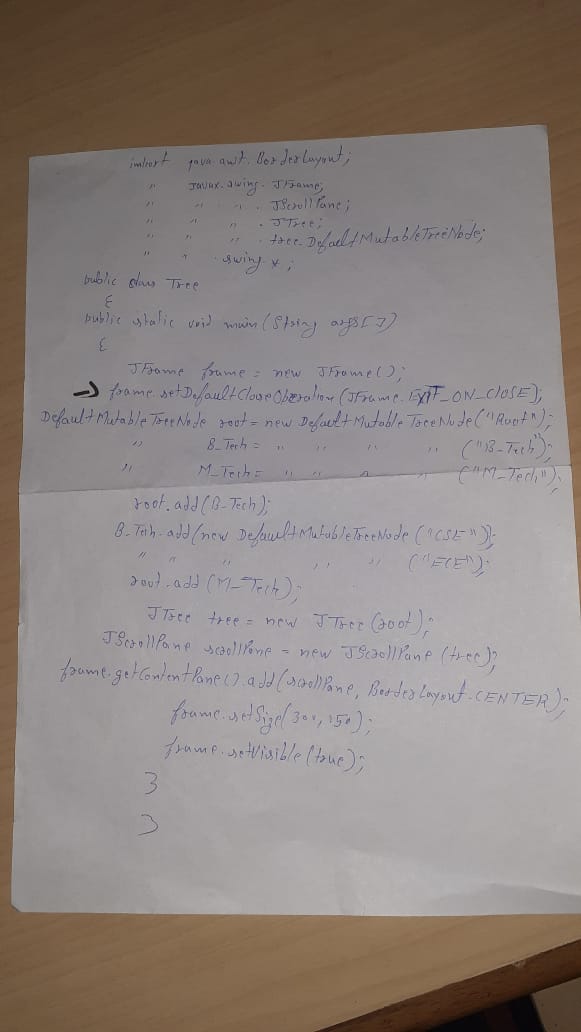 import java.awt.BorderLayout;
" javax.swing.JFrame;
" " " . JScrollPane;
" " " . JTree;
" " " . tree.DefaultMutableTreeNode;
" " .swing *;
public class Tree
{
public static void main(String args[])
{
JFrame frame = new JFrame();
→ frame.setDefaultCloseOperation(JFrame.EXIT_ON_CLOSE);
DefaultMutableTreeNode root = new DefaultMutableTreeNode("Root");
" B_Tech = " " " " ("B-Tech");
" M_Tech = " " " " ("M-Tech");
root.add(B-Tech);
B_Tech.add(new DefaultMutableTreeNode("CSE"));
" " " " " ("ECE");
root.add(M-Tech);
JTree tree = new JTree(root);
JScrollPane scrollPane = new JScrollPane(tree);
frame.getContentPane().add(scrollPane, BorderLayout.CENTER);
frame.setSize(300,150);
frame.setVisible(true);
}
}